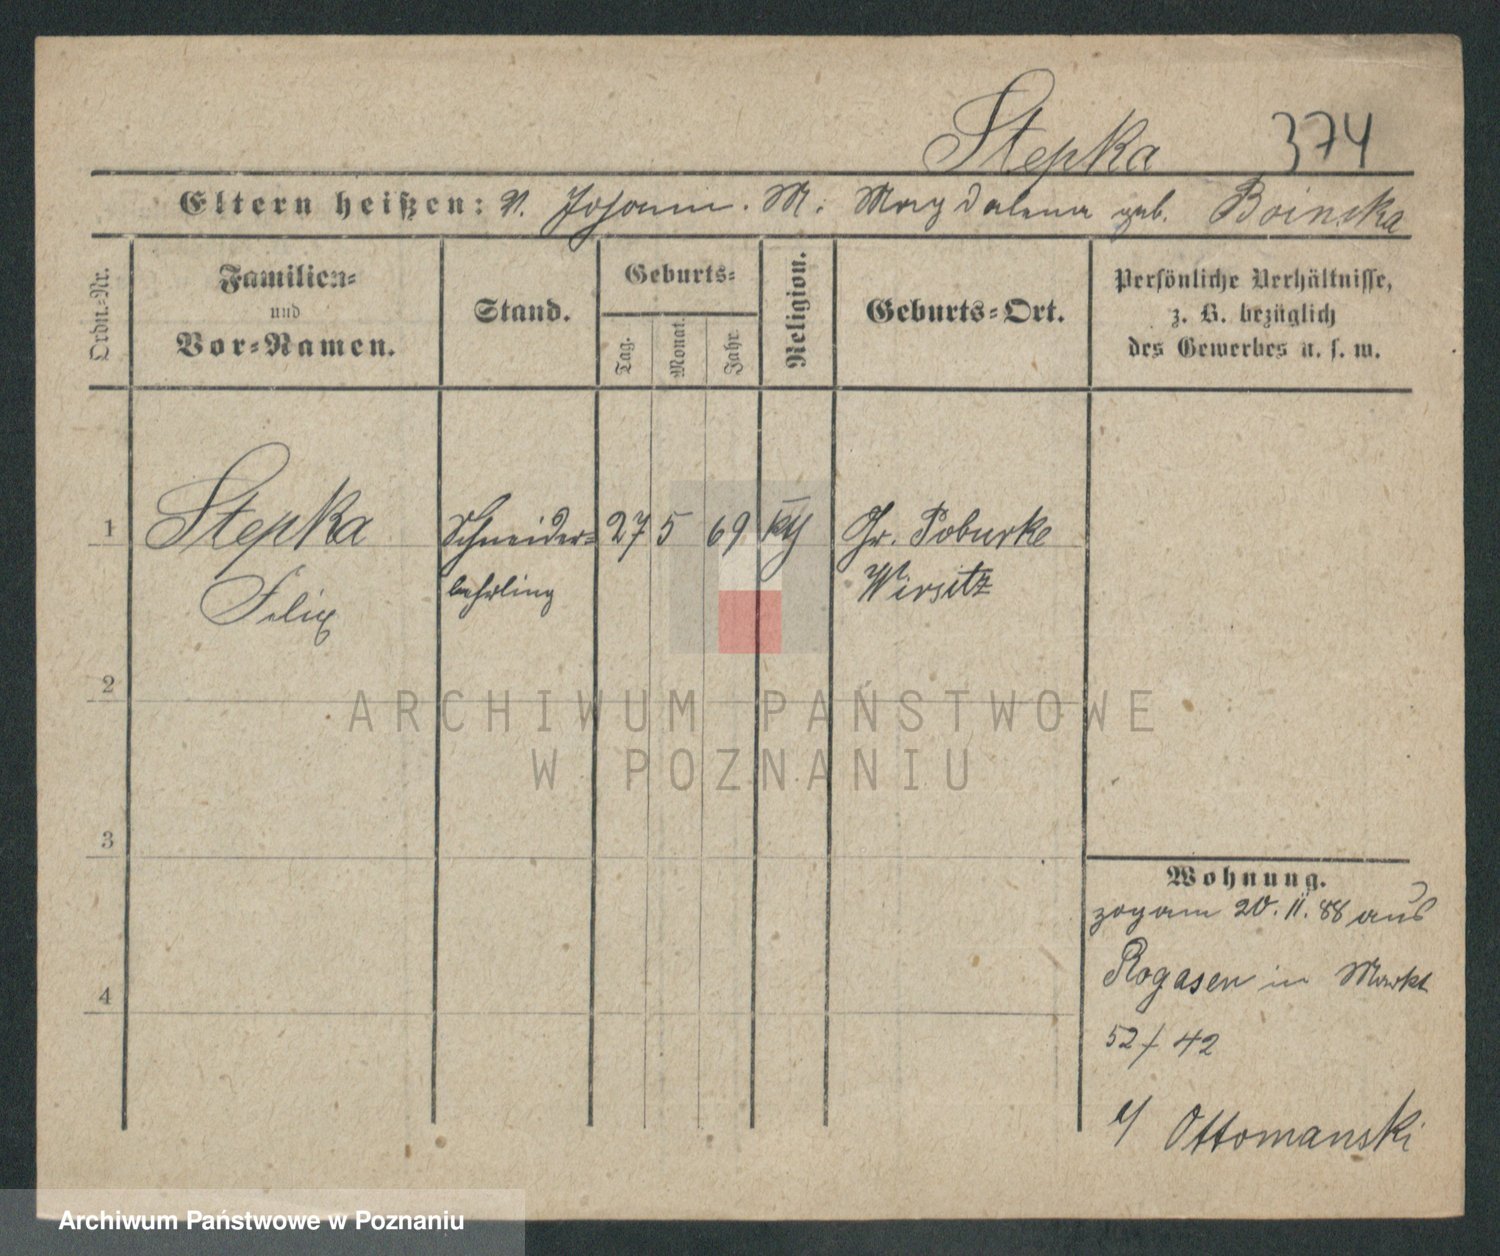 Stepka 374
Eltern heißen: V. Johann. M. Magdalena geb. Boinska
Ordn.=Nr.
Familien=
und
Vor=Namen.
Stand.
Geburts=
Tag.
Monat.
Jahr
Religion.
Geburts=Ort.
Persönliche Verhältnisse,
z. B. bezüglich
des Gewerbes u. s. w.
1 Stepka Schneider= 27 5 69 Gr. Poburke
Felix lehrling Wirsitz
2
ARCHIWUM PAŃSTWOWE
W POZNANIU
3
Wohnung.
zog am 20. 11. 88 aus
Rogasen in Markt
4
52/42
Ottomanski
Archiwum Państwowe w Poznaniu